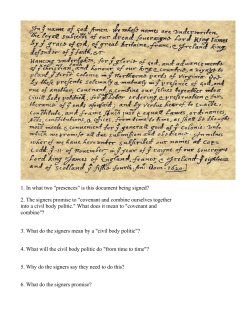 In yᵉ name of god Amen. We whose names are underwriten,
the loyall subjects of our dread soveraigne Lord King James
by yᵉ grace of god, of great Britaine, franc, & Ireland king,
defender of yᵉ faith, &c.
Haveing undertaken, for yᵉ glorie of god, and advancemente
of yᵉ christian and honour of our king & countrie, a voyage to
plant yᵉ first colonie in yᵉ Northerne parts of virginia. doe
by these presents solemnly & mutualy in yᵉ presence of god, and
one of another, covenant, & combine our selves togeather into a
civill body politick; for our better ordering, & preservation & fur=
therance of yᵉ ends aforesaid; and by vertue hearof to enacte,
constitute, and frame such just & equall lawes, ordinances,
Acts, constitutions, & offices, from time to time, as shall be thought
most meete & convenient for yᵉ generall good of yᵉ Colonie: unto
which we promise all due submission and obedience. In witnes
wherof we have hereunder subscribed our names at Cap=
Codd yᵉ .11. of November, in yᵉ year of yᵉ raigne of our soveraigne
Lord king James of England, france, & Ireland yᵉ eighteenth
and of Scotland yᵉ fiftie fourth. Ano: Dom. 1620.
1. In what two "presences" is this document being signed?
2. The signers promise to "covenant and combine ourselves together
into a civil body politic." What does it mean to "covenant and
combine"?
3. What do the signers mean by a "civil body politic"?
4. What will the civil body politic do "from time to time"?
5. Why do the signers say they need to do this?
6. What do the signers promise?